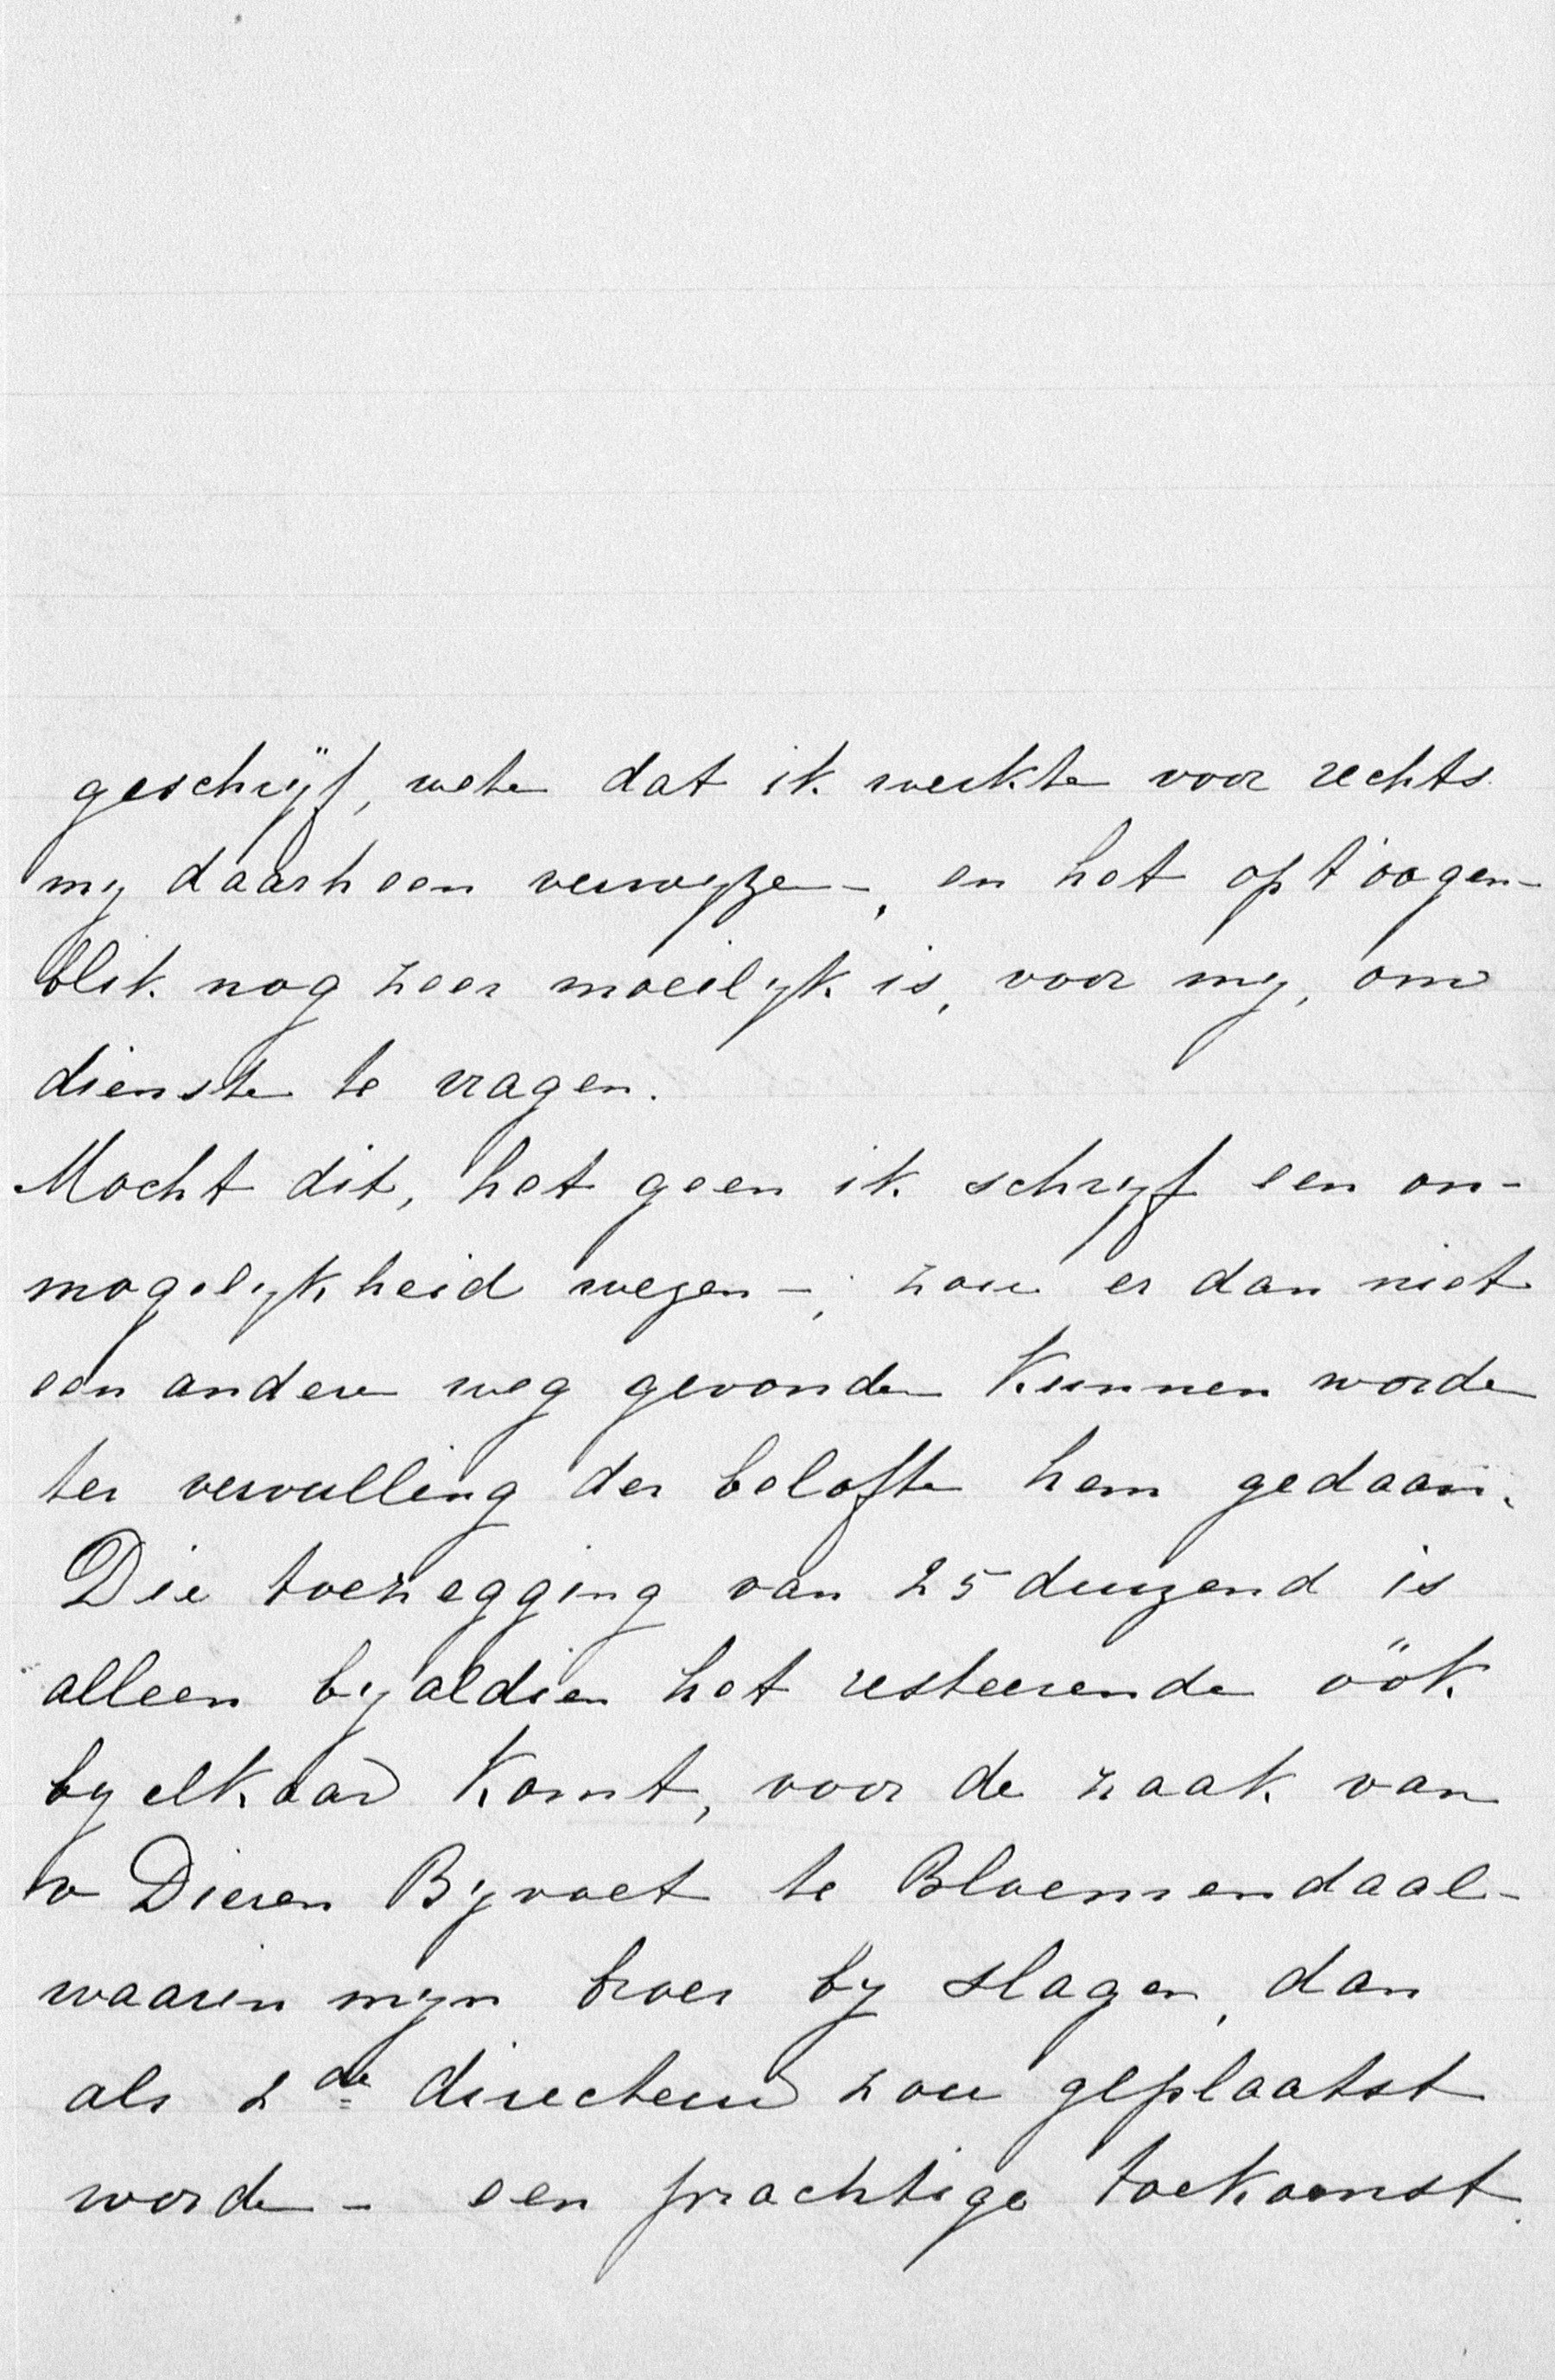 geschrijf, weten dat ik werkte voor rechts
my daarheen verwyzen –, en het op 't oogen-
blik nog zeer moeilyk is, voor my, om
diensten te vragen.
Mocht dit, het geen ik schryf een on-
mogelykheid wezen –, zou er dan niet
een andere weg gevonden kunnen worden
ter vervulling der belofte hem gedaan.
Die toezegging van 25 duuzend is
alleen byaldien het resteerende öök
by elkaar komt, voor de zaak van
v Dieren Byvoet te Bloemendaal –
waarin myn broer by slagen, dan
als 2de directeur zou geplaatst
worden – een prachtige toekomst.